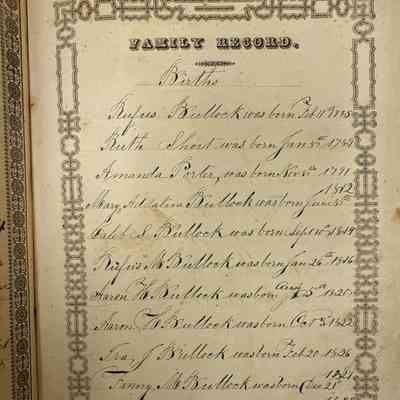 FAMILY RECORD.
Births
Rufus Bullock was born Feb
Ruth Short was born Jan 3rd
Amanda Porter, was born Nov 5th 1791
1812
Mary Adaline Bullock was born June 5th
Caleb S Bullock was born Sept 10th 1814
Rufus M Bullock was born Jan 26th 1816
Aaron H Bullock was born Aug 5th 1820
Aaron H Bullock was born Oct 5th 1822
Ira J Bullock was born Feb 20 1826
Fanny M Bullock was born Dec 25